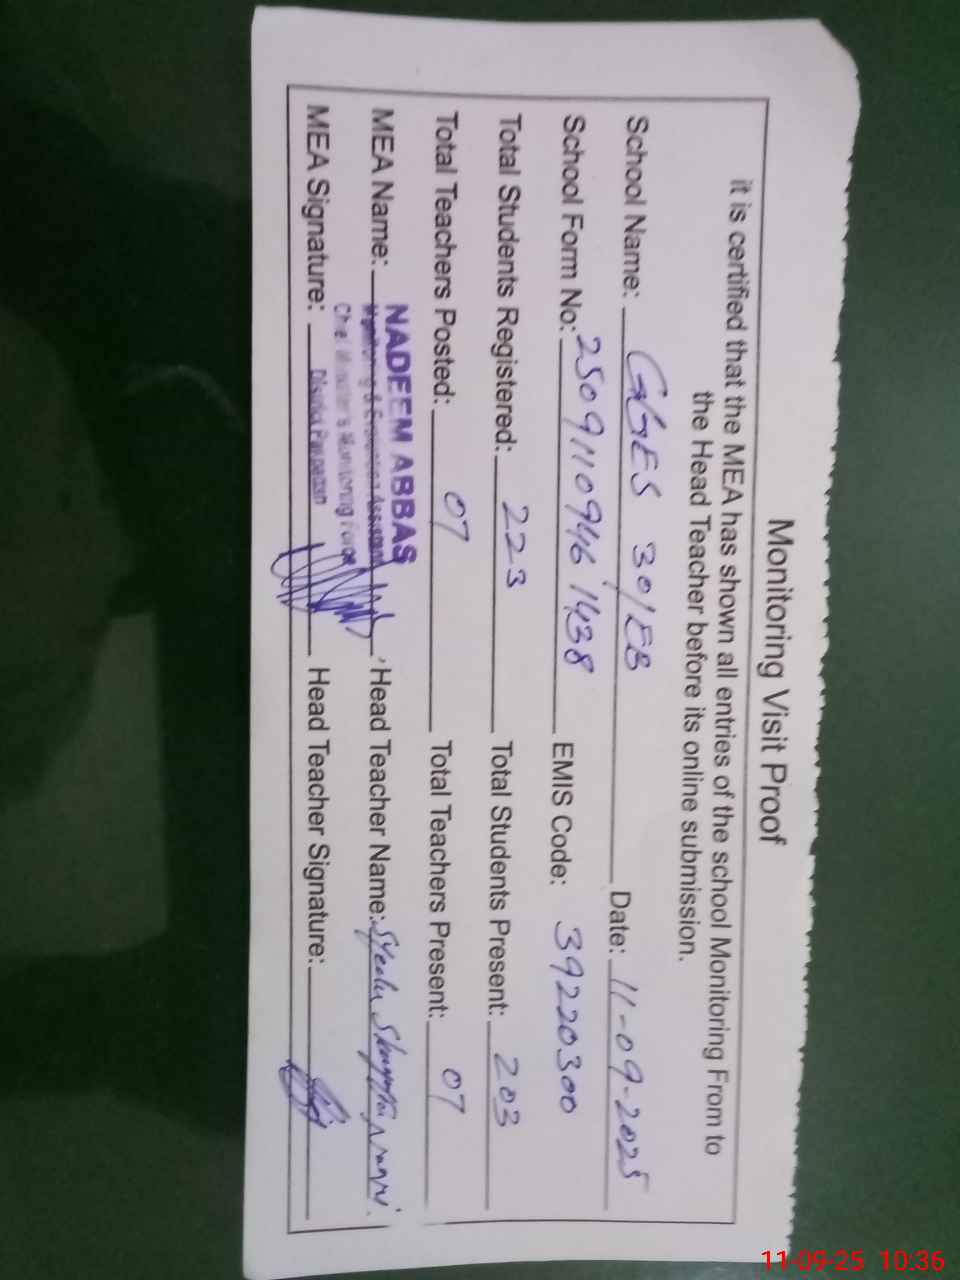 Monitoring Visit Proof
it is certified that the MEA has shown all entries of the school Monitoring From to
the Head Teacher before its online submission.
School Name: GGES 30/EB Date: 11-09-2025
School Form No: 2509110946 1438 EMIS Code: 39220300
Total Students Registered: 223 Total Students Present: 203
Total Teachers Posted: 07 Total Teachers Present: 07
MEA Name: NADEEM ABBAS Head Teacher Name: Syeda
Monitoring & Evaluation Assistant
Chief Minister's Monitoring Force
MEA Signature: District Pakpattan Head Teacher Signature:
11-09-25 10:36